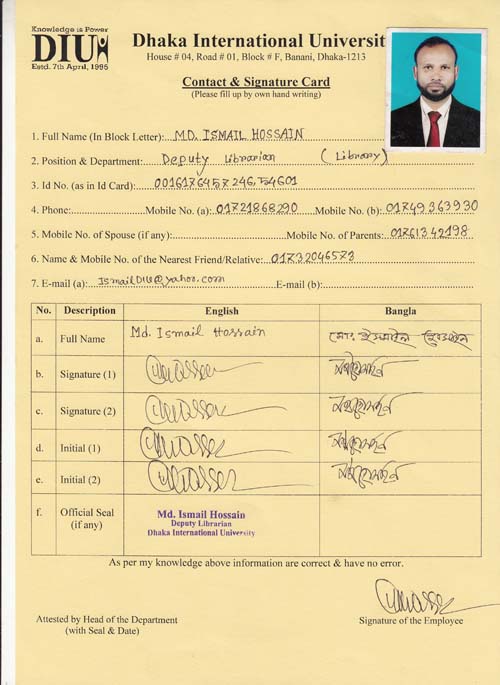 Knowledge is Power
DIU
Estd. 7th April, 1995
Dhaka International University
House # 04, Road # 01, Block # F, Banani, Dhaka-1213
Contact & Signature Card
(Please fill up by own hand writing)
1. Full Name (In Block Letter): MD. ISMAIL HOSSAIN
2. Position & Department: Deputy Librarian (Library)
3. Id No. (as in Id Card):
4. Phone: Mobile No. (a): 01721868290 Mobile No. (b): 01749363930
5. Mobile No. of Spouse (if any): Mobile No. of Parents:
6. Name & Mobile No. of the Nearest Friend/Relative: 01732046573
7. E-mail (a): IsmailDIU@yahoo.com E-mail (b):
No. Description English Bangla
a. Full Name Md. Ismail Hossain মোঃ ইসমাইল হোসাইন
b. Signature (1)
c. Signature (2)
d. Initial (1)
e. Initial (2)
f. Official Seal (if any) Md. Ismail Hossain
Deputy Librarian
Dhaka International University
As per my knowledge above information are correct & have no error.
Attested by Head of the Department
(with Seal & Date)
Signature of the Employee